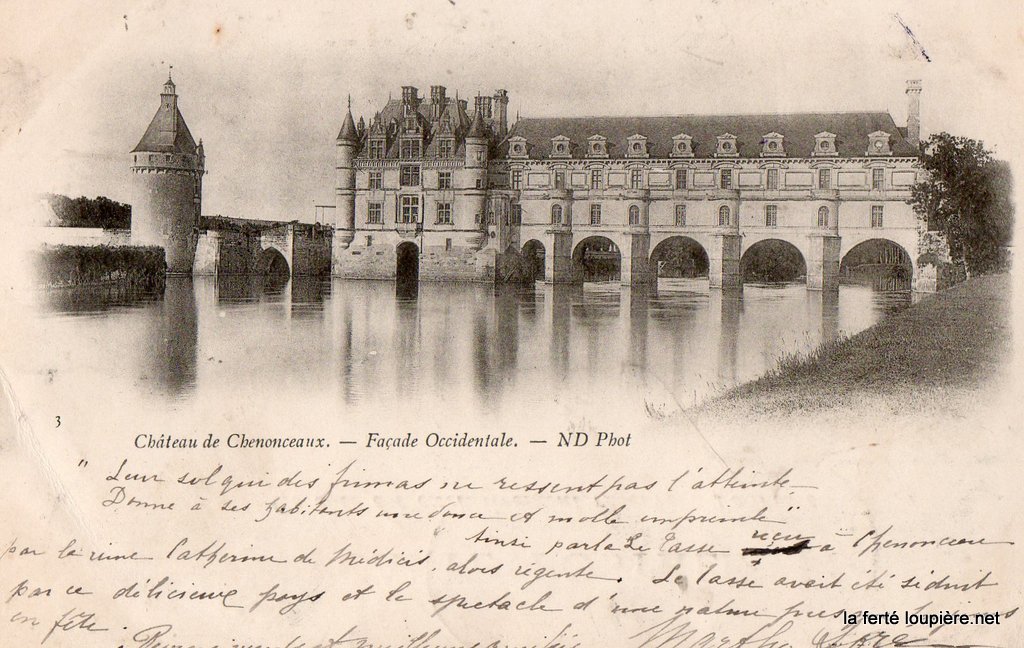 3
Château de Chenonceaux. — Façade Occidentale. — ND Phot
" Leur sol qui des frimas ne ressent pas l'atteinte
Donne à ses habitants une douce et molle empreinte "
Ainsi parla Le Tasse reçu à Chenonceau
par la reine Catherine de Médicis, alors régente. Le Tasse avait été séduit
par ce délicieux pays et le spectacle d'une nature presque toujours
en fête.
meilleures Marthe
la ferté loupière.net